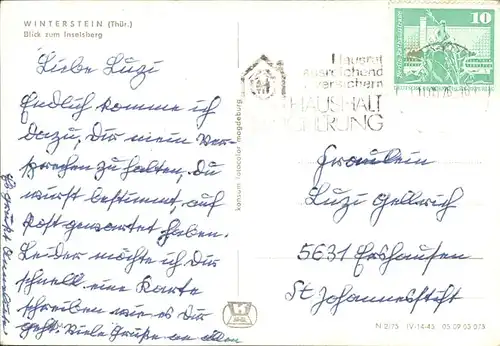 WINTERSTEIN (Thür.)
Blick zum Inselsberg
Liebe Luzi
Endlich komme ich
dazu, Dir mein Ver-
sprechen zu halten. Du
wirst bestimmt, auf
Post gewartet haben.
Leider möchte ich Dir
schnell eine Karte
schreiben wie es Dir
geht. Viele Grüße an allen
Es grüßt
konsum fotocolor magdeburg
Hausrat
ausreichend
versichern
HAUSHALT
10
Fräulein
Luzi Gellrich
5631 Ershausen
St Johannesstift
N 2/75 IV-14-45 05 09 03 075